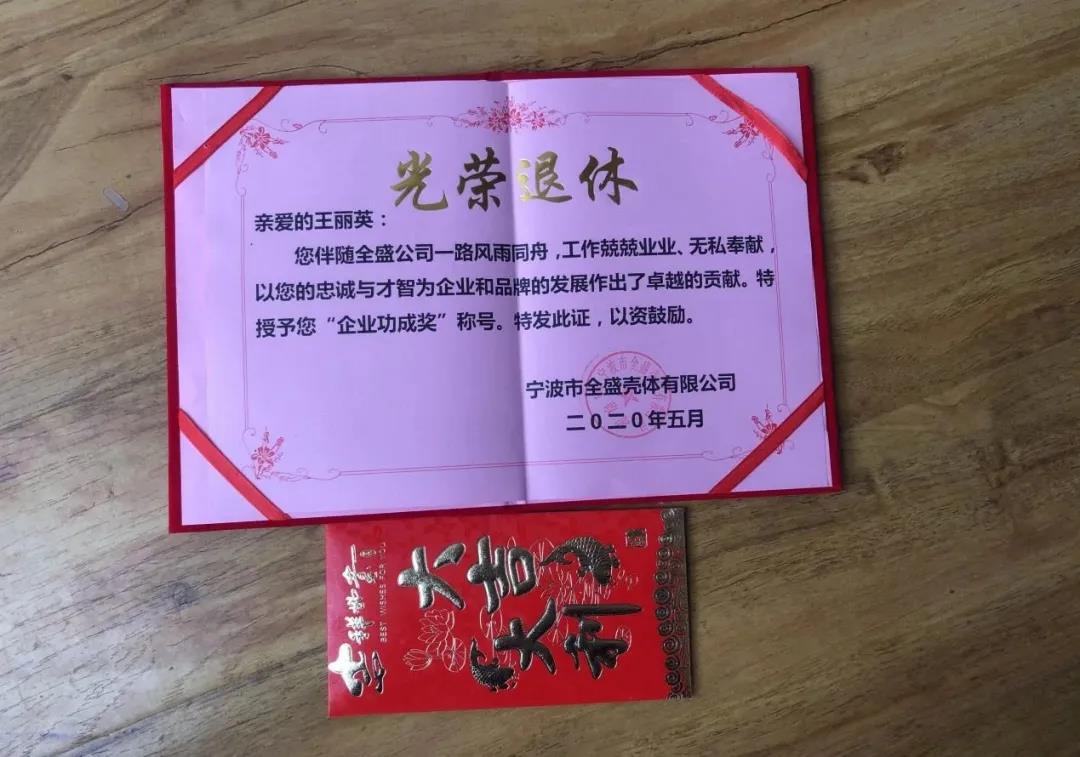 光荣退休
亲爱的王丽英：
您伴随全盛公司一路风雨同舟，工作兢兢业业、无私奉献，
以您的忠诚与才智为企业和品牌的发展作出了卓越的贡献。特
授予您“企业功成奖”称号。特发此证，以资鼓励。
宁波市全盛壳体有限公司
二0二0年五月
宁波市全盛
大吉
大利
吉祥如意
BEST WISHES FOR YOU